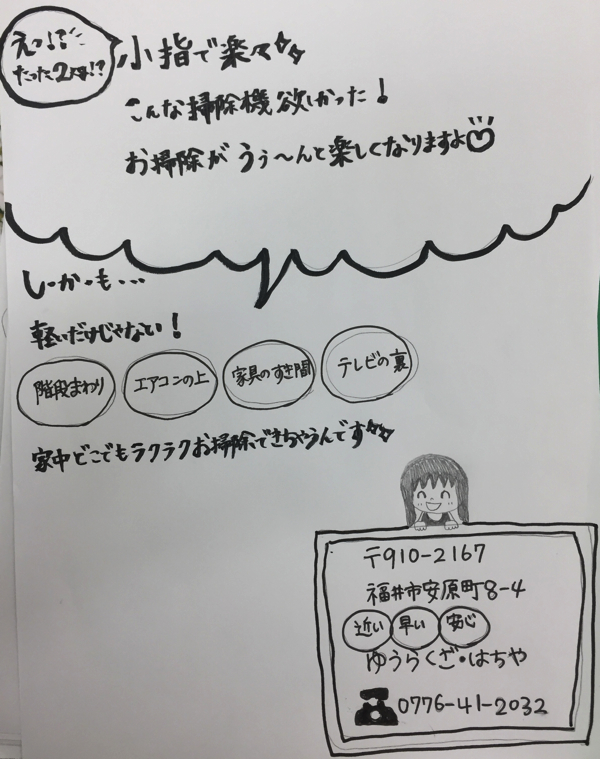 えっ!?
たった2kg!?
小指で楽々
こんな掃除機欲しかった！
お掃除がうぅ〜んと楽しくなりますよ
しーかーも…
軽いだけじゃない！
階段まわり
エアコンの上
家具のすき間
テレビの裏
家中どこでもラクラクお掃除できちゃうんです
〒910-2167
福井市安原町8-4
近い 早い 安心
ゆうらくざ・はちや
0776-41-2032